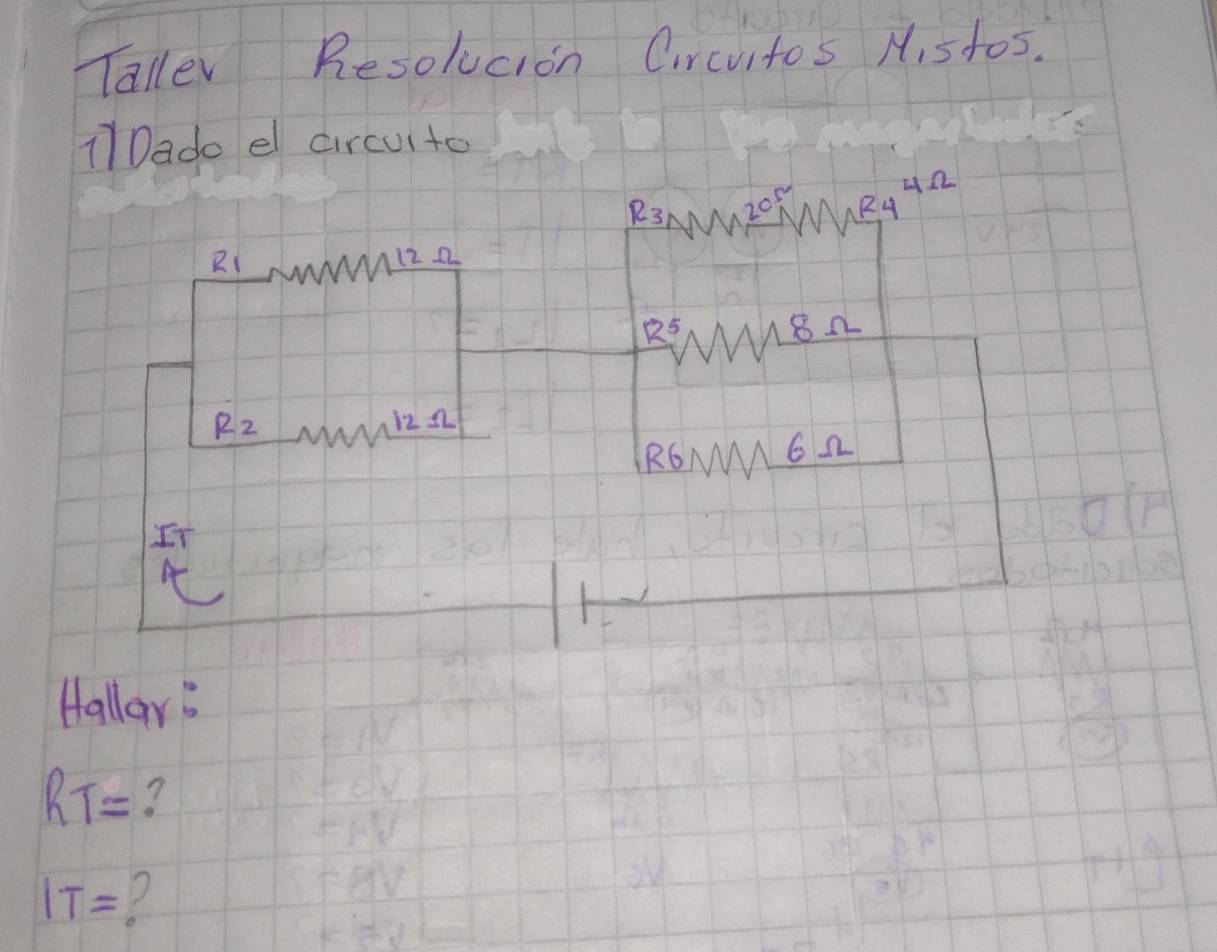 Taller Resolución Circuitos Mistos.
1) Dado el circuito
R3 20Ω R4 4Ω
R1 12 Ω
R5 8 Ω
R2 12 Ω
R6 6 Ω
IT
Hallar:
RT=?
IT=?